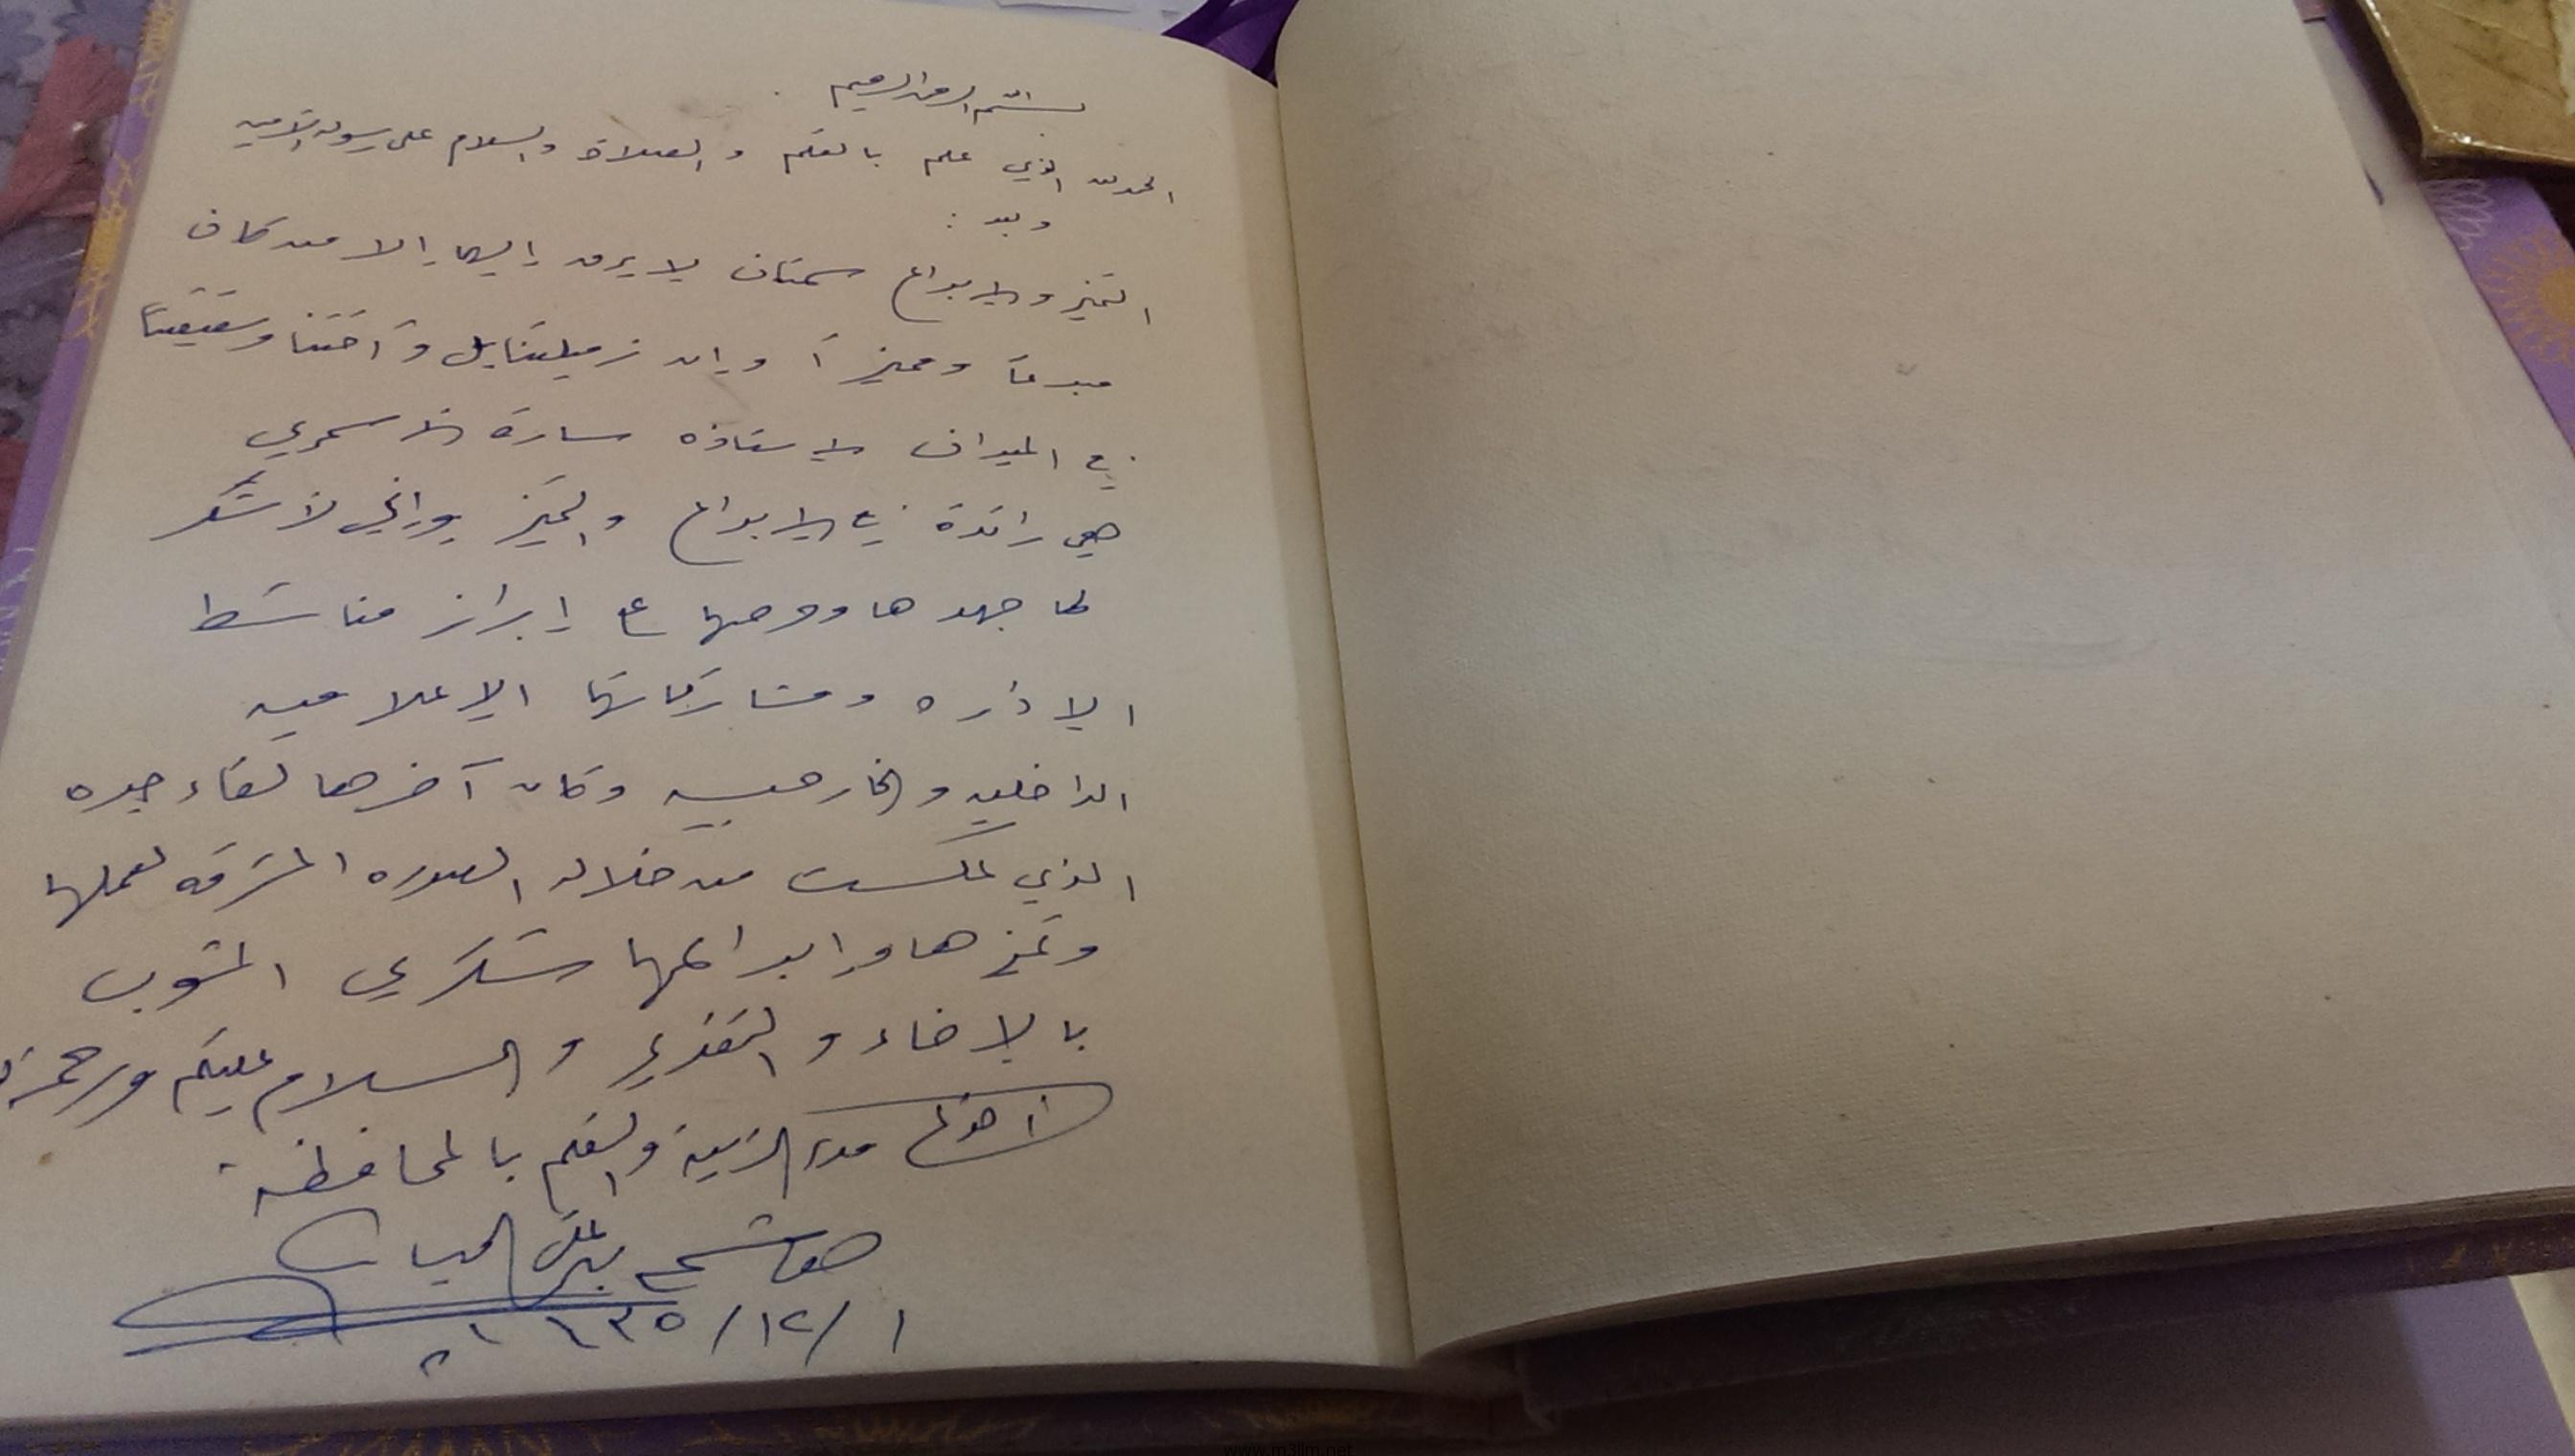 بسم الله الرحمن الرحيم
الحمد لله الذي علم بالقلم والصلاة والسلام على رسوله الأمين
وبعد :
التميز والإبداع سمتان لا يرقى إليها إلا من كان
مبدعاً ومميزاً وإن زميلتنا بل وأختنا وشقيقتنا
في الميدان الأستاذه سارة الأسمري
هي رائدة في الإبداع والتميز وإني لأشكر
لها جهدها وحرصها على إبراز مناشط
الإداره ومشاركاتها الإعلاميه
الداخليه والخارجيه وكان آخرها لقاء جده
الذي عكست من خلاله الصوره المشرقه لعملها
وتميزها وإبداعها شكري المشوب
بالإخاء والتقدير والسلام عليكم ورحمة
أخوكم مدير التربية والتعليم بالمحافظة
هاشم بن علي الحياني
١ /١٢/ ١٤٣٥
www.m3llm.net